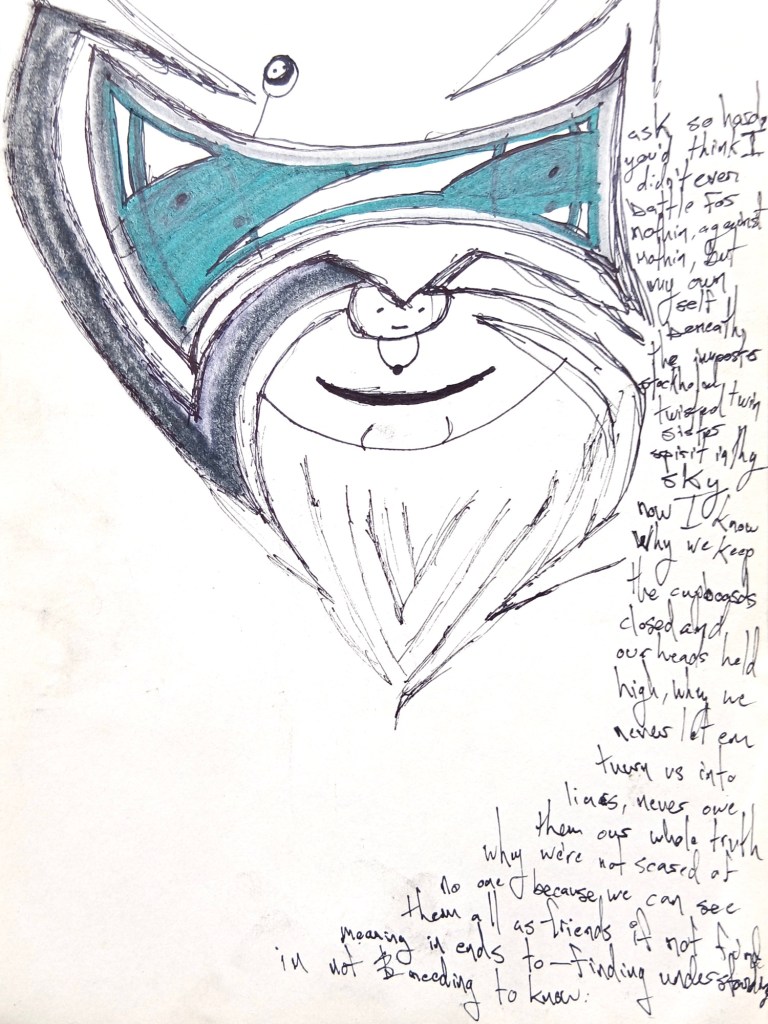 ask so hard,
you'd think I
didn't even
battle for
nothin, against
nathin, but
my own
self
beneath
the imposter
stockholm
twisted twin
sister
spirit in thy
sky
now I know
why we keep
the cupboards
closed and
our heads held
high, why we
never let em
turn us into
liars, never owe
them our whole truth
why we're not scared of
no one because we can see
them all as friends if not find
meaning in ends to-finding understanding
in not needing to know.